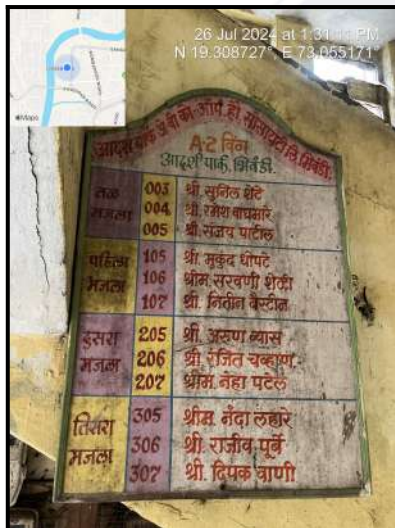 26 Jul 2024 at 1:31:11 PM
N 19.308727° E 73.055171°
Maps
आदर्श पार्क जे बी को. ऑप. हौ. सोसायटी लि. भिवंडी.
A-2 विंग
आदर्श पार्क, भिवंडी.
तळ मजला
003 श्री. सुनिल शेटे
004 श्री. रमेश वाघमारे
005 श्री. संजय पाटील
पहिला मजला
105 श्री. मुकुंद धोपटे
106 श्रीम. सरवणी शेळी
107 श्री. नितीन वैस्टीन
दुसरा मजला
205 श्री. अरुण व्यास
206 श्री. रंजित चव्हाण
207 श्रीम. नेहा पटेल
तिसरा मजला
305 श्रीम. नंदा लहारे
306 श्री. राजीव पूर्बे
307 श्री. दिपक वाणी